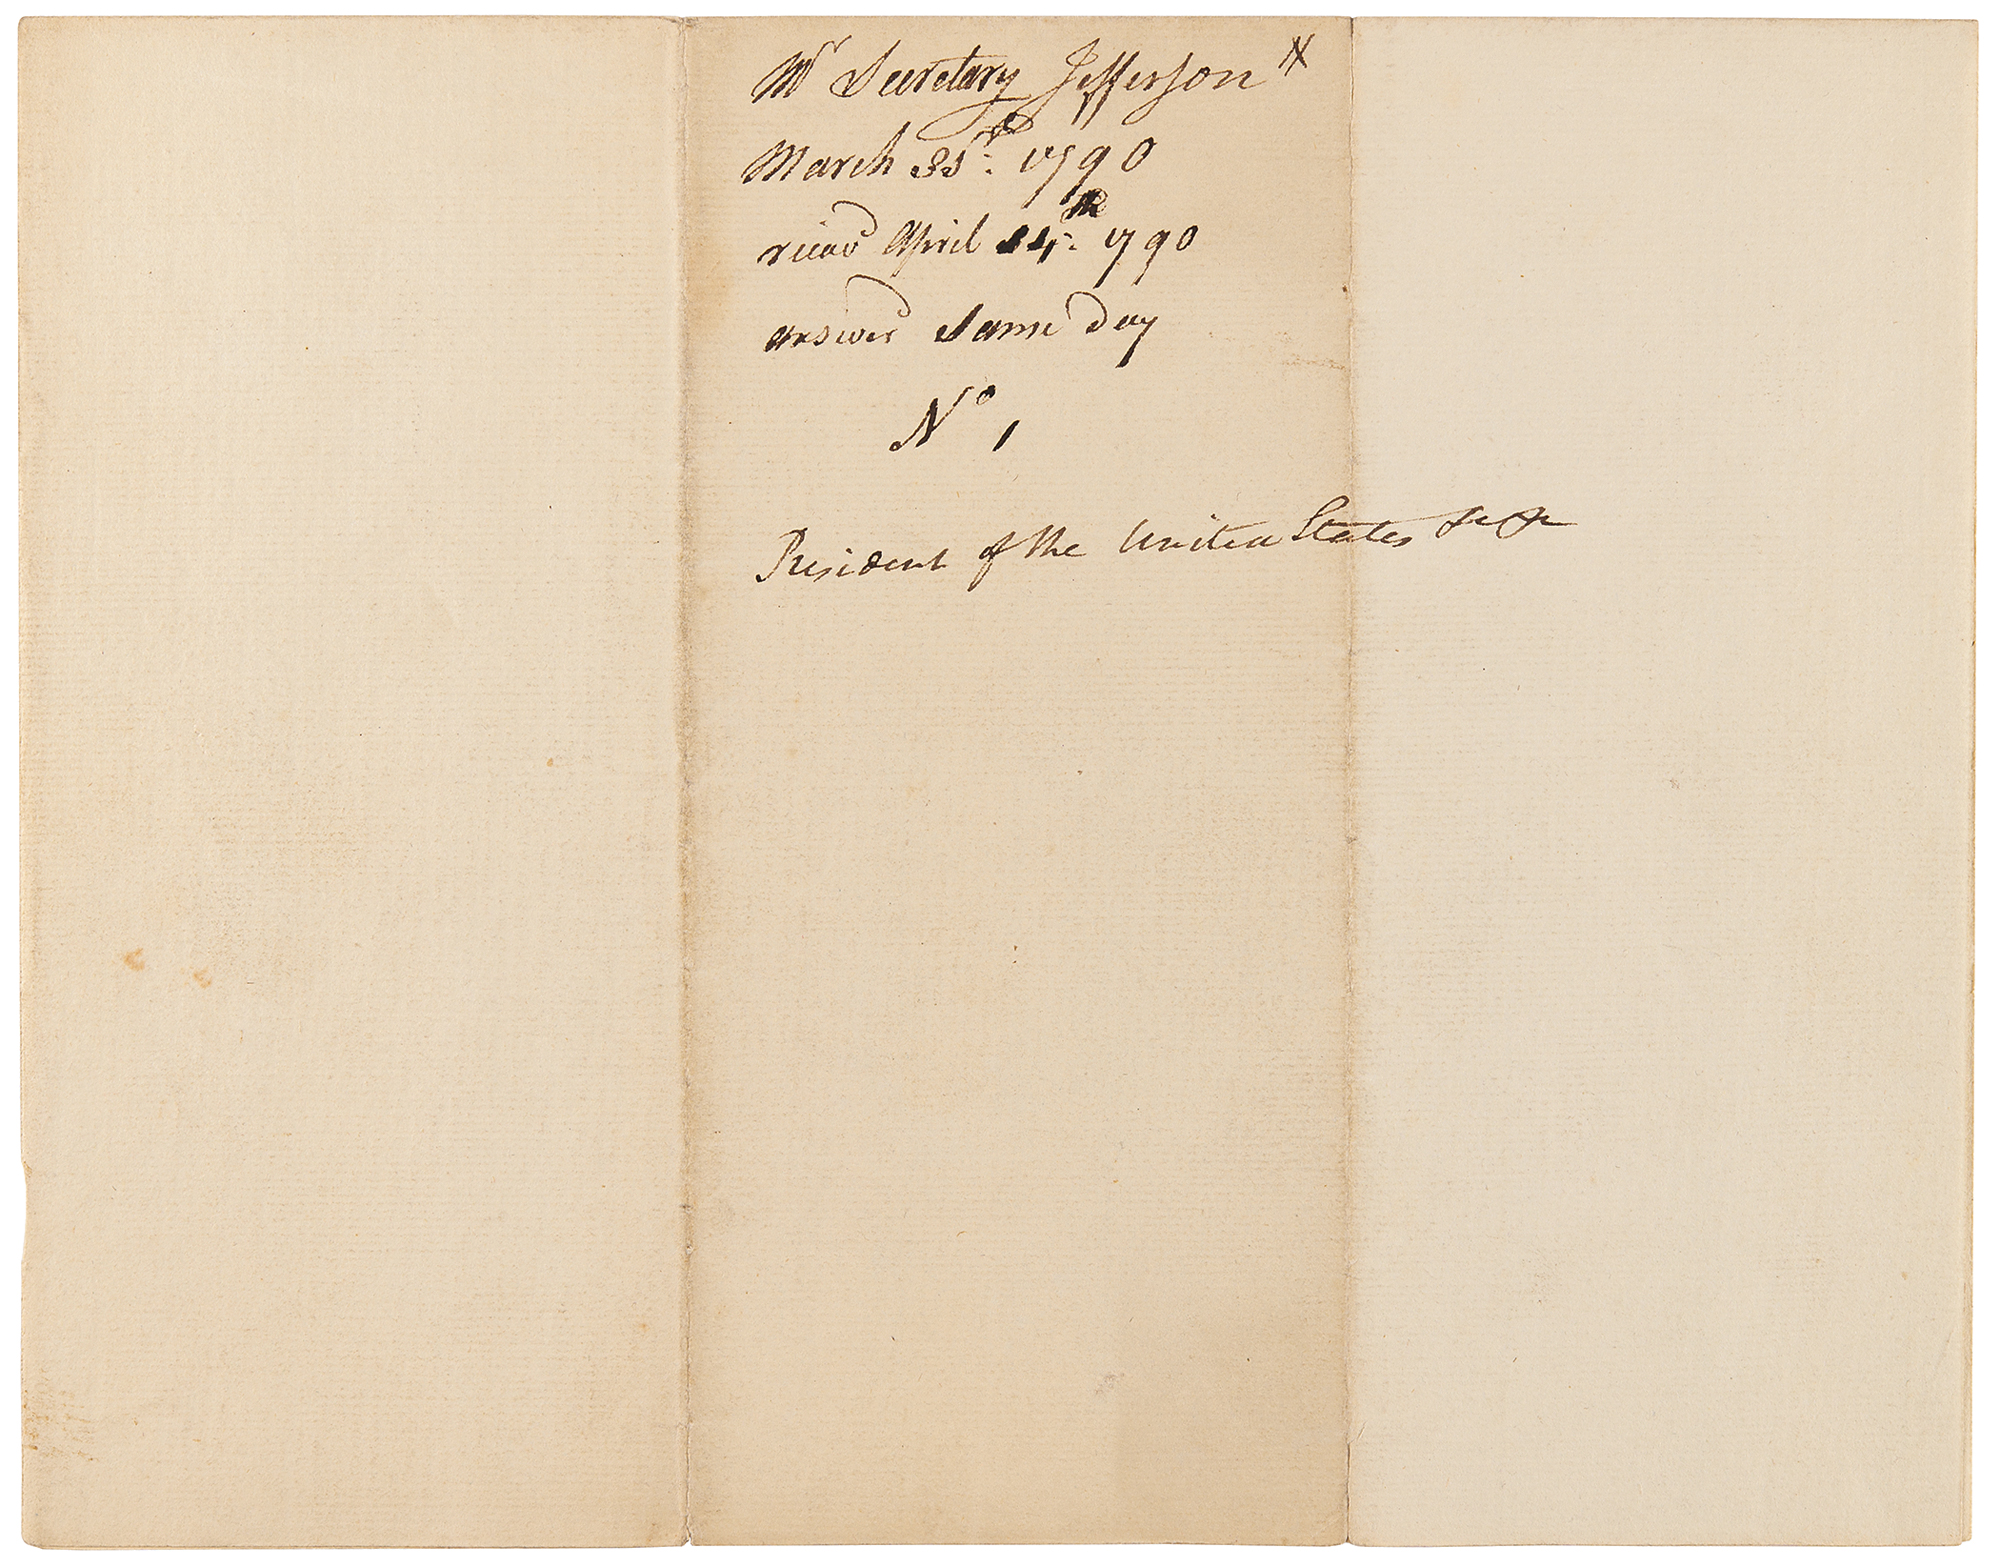 Mr Secretary Jefferson #
March 31st: 1790
recieved April 14th: 1790
answerd Same Day
No 1
President of the United States &c &c